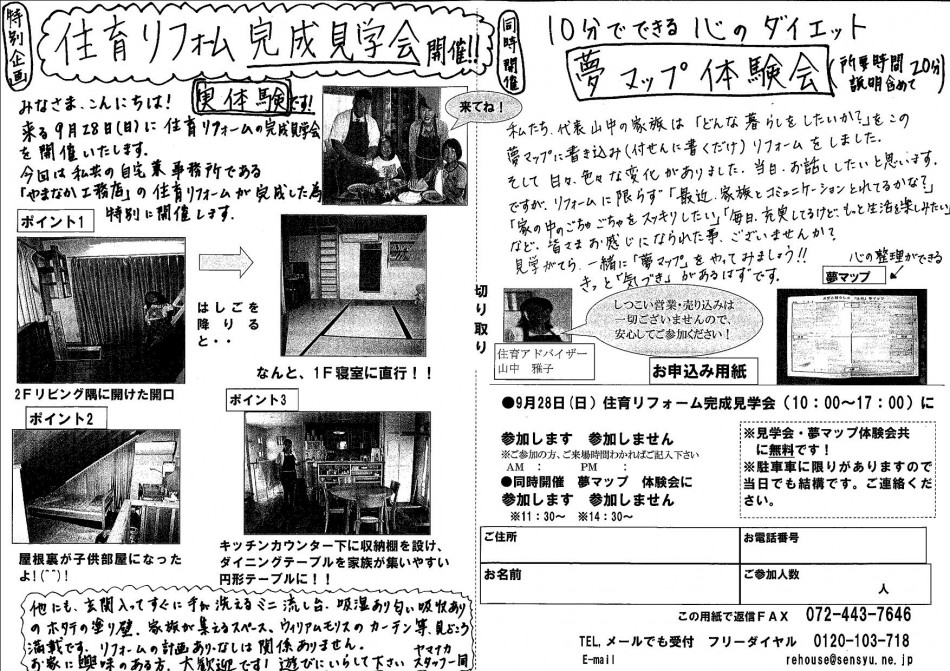 特別企画
住育リフォーム 完成見学会 開催!!
みなさま、こんにちは! 実体験です!
来る9月28日(日)に住育リフォームの完成見学会
を開催いたします。
今回は私共の自宅兼事務所である
「やまなか工務店」の住育リフォームが完成した為
特別に開催します。
来てね!
ポイント1
はしごを
降りる
と・・
2Fリビング隅に開けた開口
なんと、1F寝室に直行!!
ポイント2
屋根裏が子供部屋になった
よ!(^^)!
ポイント3
キッチンカウンター下に収納棚を設け、
ダイニングテーブルを家族が集いやすい
円形テーブルに!!
他にも、玄関入ってすぐに手が洗えるミニ流し台、吸湿あり匂い吸収あり
のホタテの塗り壁、家族が集えるスペース、ウィリアムモリスのカーテン等、見どころ
満載です。リフォームの計画あり・なしは関係ありません。
お家に興味のある方、大歓迎です!遊びにいらして下さい
ヤマナカ
スタッフ一同
切り取り
同時開催
10分でできる!心のダイエット
夢マップ体験会(所要時間20分)
説明含めて
私たち、代表山中の家族は「どんな暮らしをしたいか?」をこの
夢マップに書き込み(付せんに書くだけ)リフォームをしました。
そして日々、色々な変化がありました。当日、お話ししたいと思います。
ですが、リフォームに限らず「最近、家族とコミュニケーションとれてるかな?」
「家の中のごちゃごちゃをスッキリしたい」「毎日、充実してるけど、もっと生活を楽しみたい」
など、皆さまお感じになられた事、ございませんか?
見学がてら、一緒に「夢マップ」をやってみましょう!!
きっと「気づき」があるはずです。
心の整理ができる
夢マップ
しつこい営業・売り込みは
一切ございませんので、
安心してご参加ください!
住育アドバイザー
山中 雅子
お申込み用紙
●9月28日(日)住育リフォーム完成見学会(10:00~17:00)に
参加します 参加しません
※ご参加の方、ご来場時間わかればご記入下さい
AM : PM :
●同時開催 夢マップ 体験会に
参加します 参加しません
※11:30~ ※14:30~
※見学会・夢マップ体験会共
に無料です!
※駐車車に限りがありますので
当日でも結構です。ご連絡くだ
さい。
ご住所
お電話番号
お名前
ご参加人数
人
この用紙で返信FAX 072-443-7646
TEL,メールでも受付 フリーダイヤル 0120-103-718
E-mail rehouse@sensyu.ne.jp